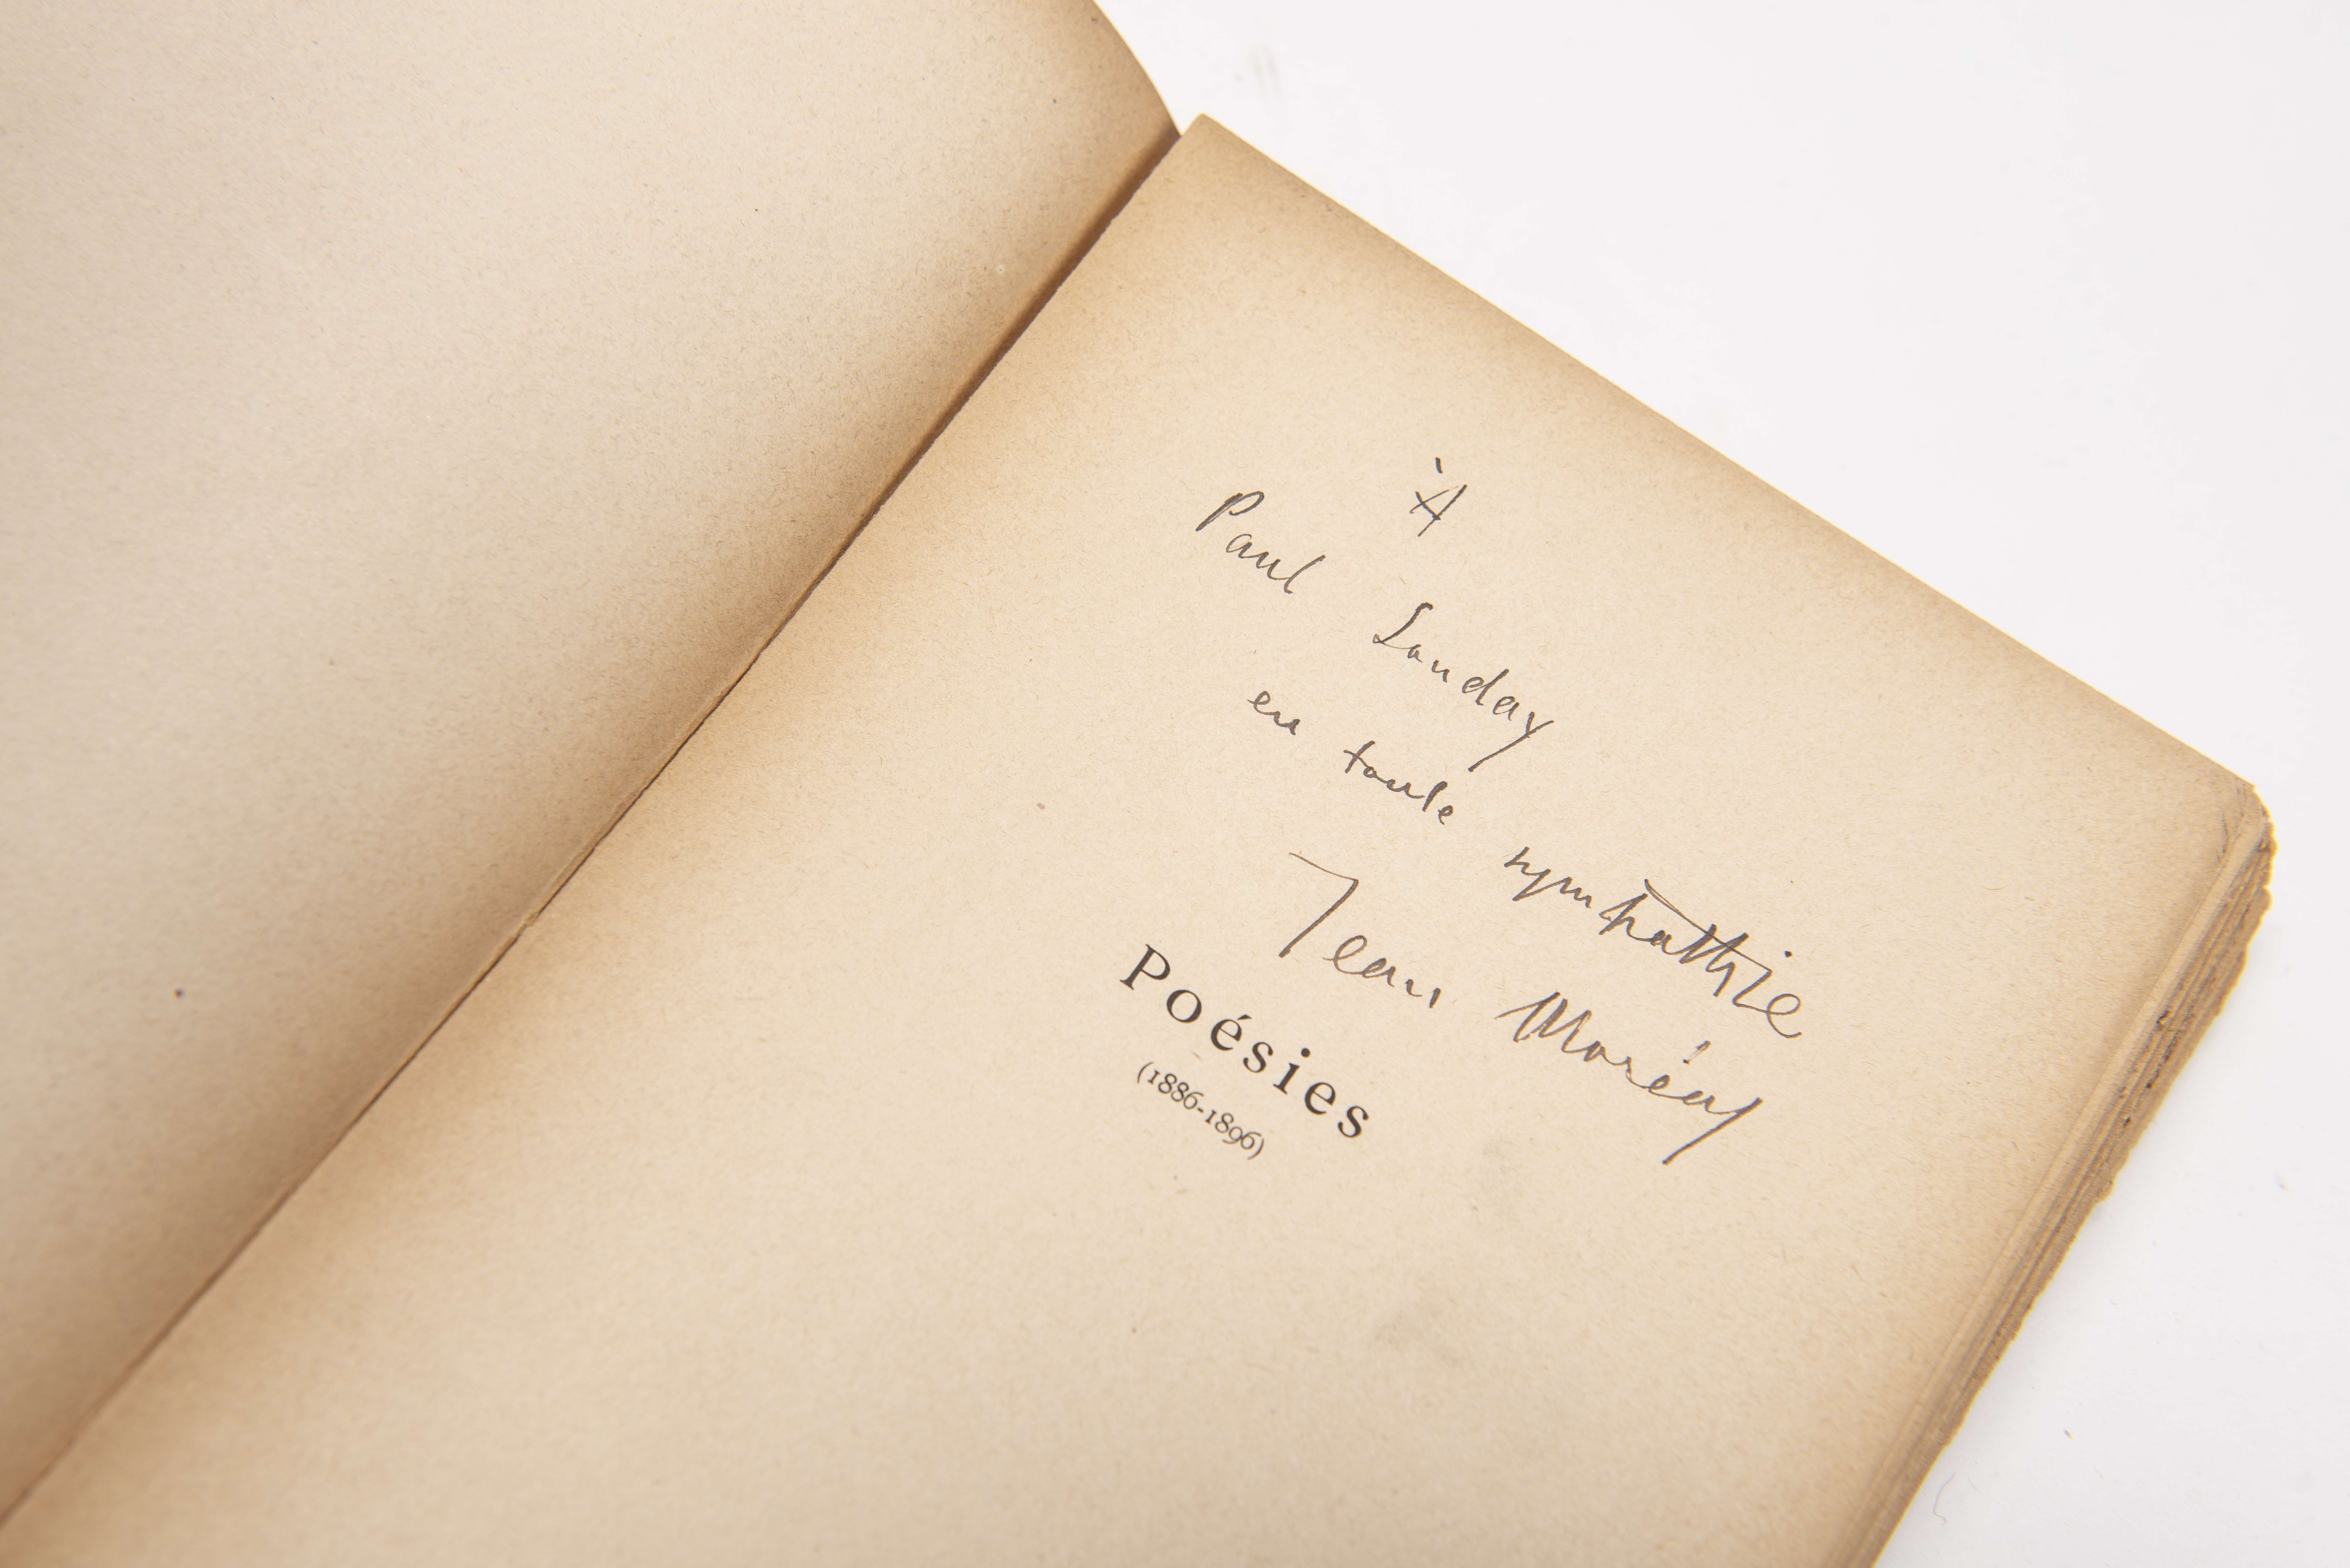 À
Paul Souday
en toute sympathie
Jean Moréas
Poésies
(1886-1896)